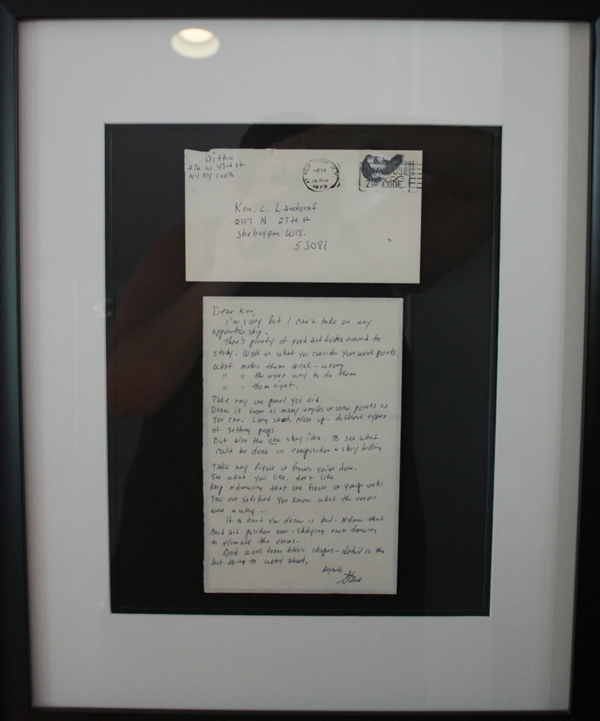 Ditko
276 W 43rd St
NY, NY 10036
ZIP CODE
Ken. L. Landgraf
2117 N 27th St
Sheboygan Wis.
53081
Dear Ken,
I'm sorry but I can't take on any
apprenticeship.
There's plenty of good art books around to
study - Work on what you consider your weak points.
What makes them weak - wrong
" " the right way to do them
" - them right.
Take any one panel you did.
Draw it from as many angles or view points as
you can. Long shot, close up - different types
of setting
But also the one story idea. To see what
could be done in composition & story telling
Take any figure or figures you've done.
See what you like, don't like
Keep redrawing that one figure or group until
you are satisfied you know what the errors
were & why..
If a hand you draw is bad - redraw that
hand and position over - studying each drawing
to elimate the errors -
And work from basic shapes - detail is the
last thing to worry about.
Regards
Steve